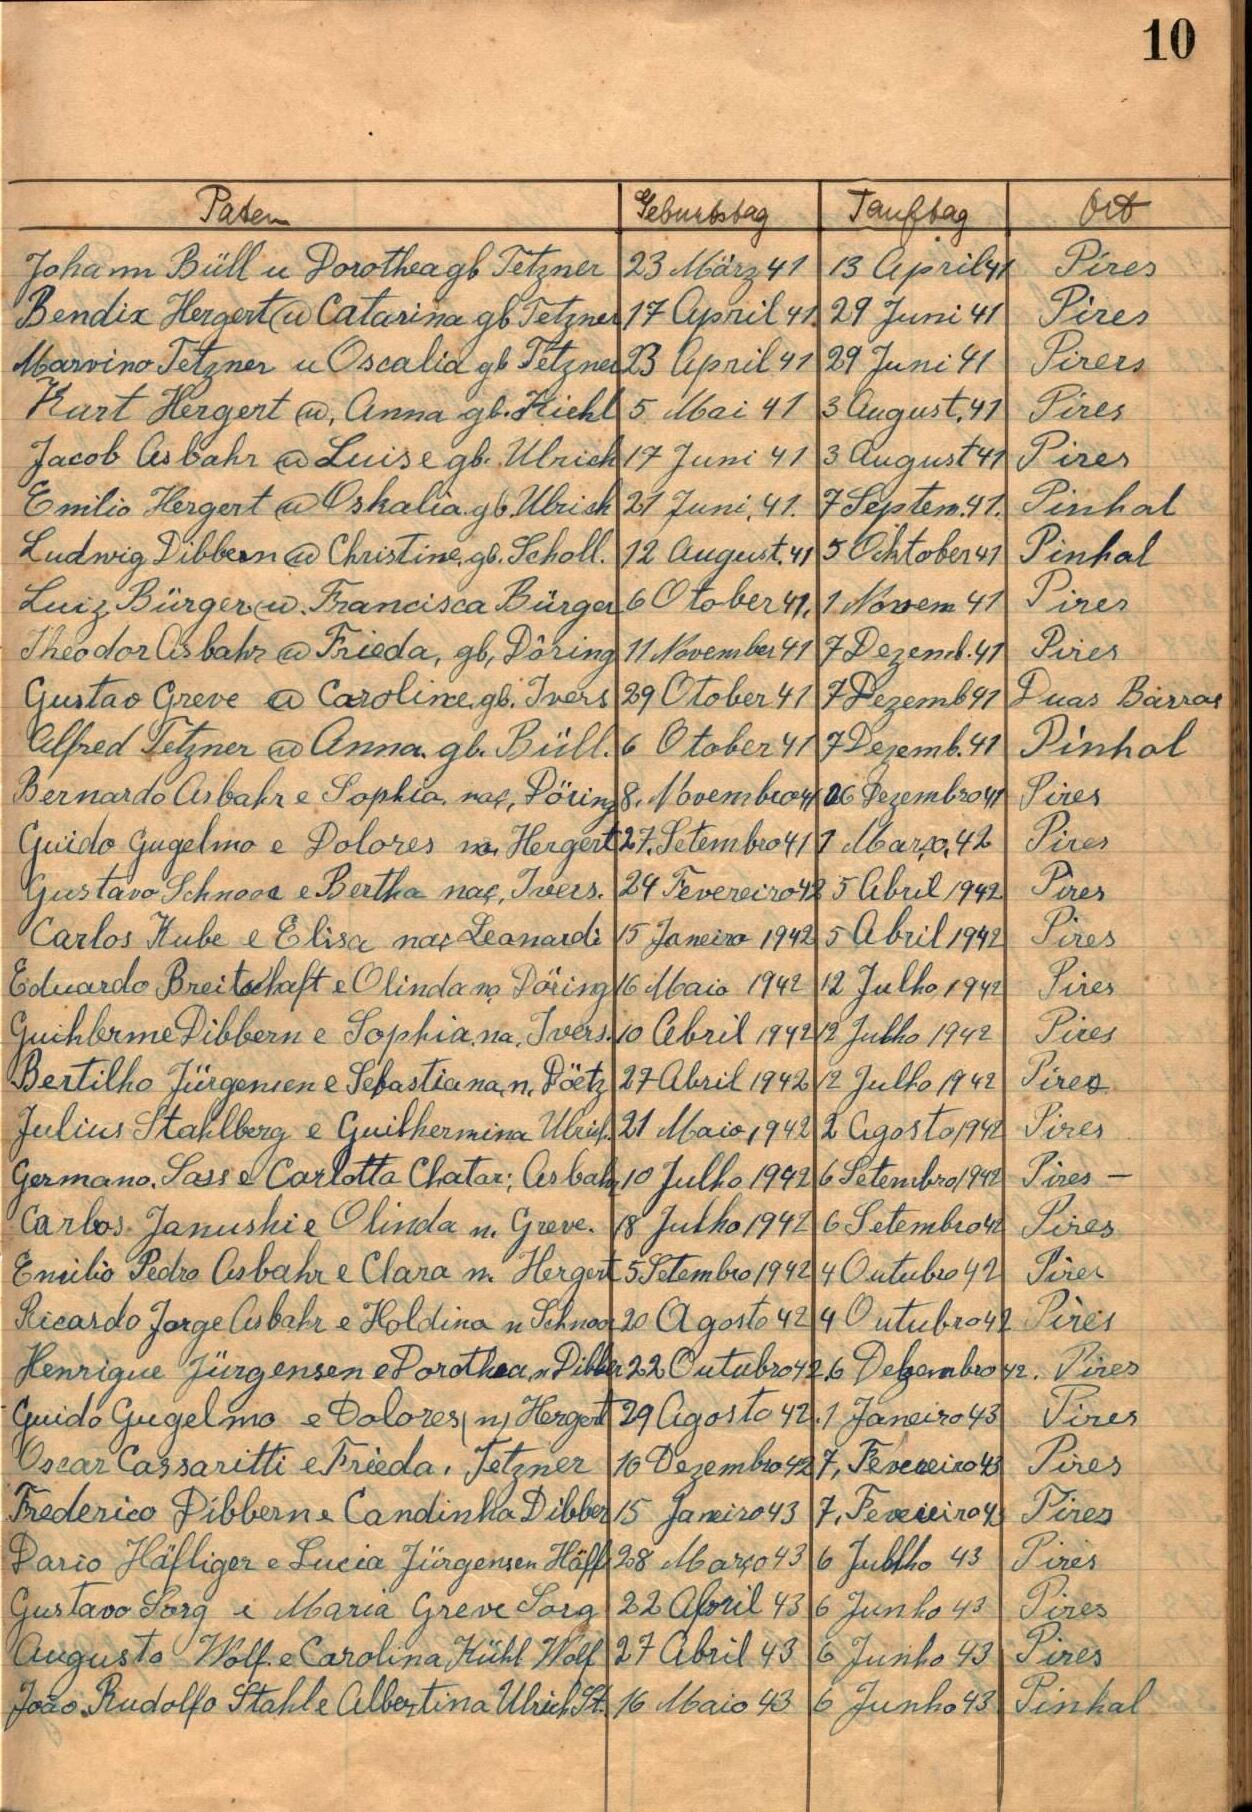 10
Paten Geburtstag Tauftag Ort
Johann Büll u Dorothea gb Tetzner 23 März 41 13 April 41 Pires
Bendix Hergert u Catarina gb Tetzner 17 April 41. 29 Juni 41 Pires
Marvino Tetzner u Oscalia gb Tetzner 23 April 41 29 Juni 41 Pirers
Kurt Hergert u, Anna gb. Kiehl 5 Mai 41 3 August. 41 Pires
Jacob Asbahr u Luise gb. Ulrich 17 Juni 41 3 August 41 Pires
Emilio Hergert u Oskalia. gb. Ulrich 21 Juni, 41. 7 Septem. 41. Pinhal
Ludwig Dibbern u Christine. gb. Scholl. 12 August. 41 5 Ochtober 41 Pinhal
Luiz Bürger u. Francisca Bürger 6 Otober 41. 1 Novem 41 Pires
Theodor Asbahr u Frieda, gb, Döring 11 November 41 7 Dezemb. 41 Pires
Gustav Greve u Caroline. gb. Ivers 29 Otober 41 7 Dezemb 41 Duas Barras
Alfred Tetzner u Anna. gb. Büll. 6 Otober 41 7 Dezemb. 41 Pinhal
Bernardo Asbahr e Sophia. naç, Döring 8. Novembro 41 26 Dezembro 41 Pires
Guido Gugelmo e Dolores na, Hergert 27. Setembro 41 1 Março. 42 Pires
Gustavo Schnoor e Bertha naç, Ivers. 24 Fevereiro 42 5 Abril 1942 Pires
Carlos Kube e Elisa naç Leonardi 15 Janeiro 1942 5 Abril 1942 Pires
Eduardo Breitschaft e Olinda na Döring 16 Maio 1942 12 Julho 1942 Pires
Guihlerme Dibbern e Sophia. na. Ivers. 10 Abril 1942 12 Julho 1942 Pires
Bertilho Jürgensen e Sebastiana, n. Döetz 27 Abril 1942 12 Julho 1942 Pires
Julius Stahlberg e Guilhermina 21 Maio, 1942 2 Agosto, 1942 Pires
Germano. Sass e Carlotta Chatar; Asbahr 10 Julho 1942 6 Setembro 1942 Pires —
Carlos Janushi e Olinda n. Greve. 18 Julho 1942 6 Setembro 42 Pires
Emilio Pedro Asbahr e Clara n. Hergert 5 Setembro 1942 4 Outubro 42 Pires
Ricardo Jorge Asbahr e Holdina n Schnoor 20 Agosto 42 4 Outubro 42 Pires
Henrique Jürgensen e Dorothea, n Dibber 22 Outubro 42. 6 Dezembro 42. Pires
Guido Gugelmo e Dolores (n) Hergert 29 Agosto 42. 1 Janeiro 43 Pires
Oscar Cassaritti e Frieda. Tetzner 10 Dezembro 42 7, Fevereiro 43 Pires
Frederico Dibbern e Candinha Dibber 15 Janeiro 43 7, Fevereiro 43 Pires
Dario Häfliger e Lucia Jürgensen Häff 28 Março 43 6 43 Pires
Gustavo Sorg e Maria Greve Sorg 22 Abril 43 6 Junho 43 Pires
Augusto Wolf e Carolina Kühl Wolf 27 Abril 43 6 Junho 43 Pires
João. Rudolfo Stahl e Albertina Ulrich St. 16 Maio 43 6 Junho 43 Pinhal